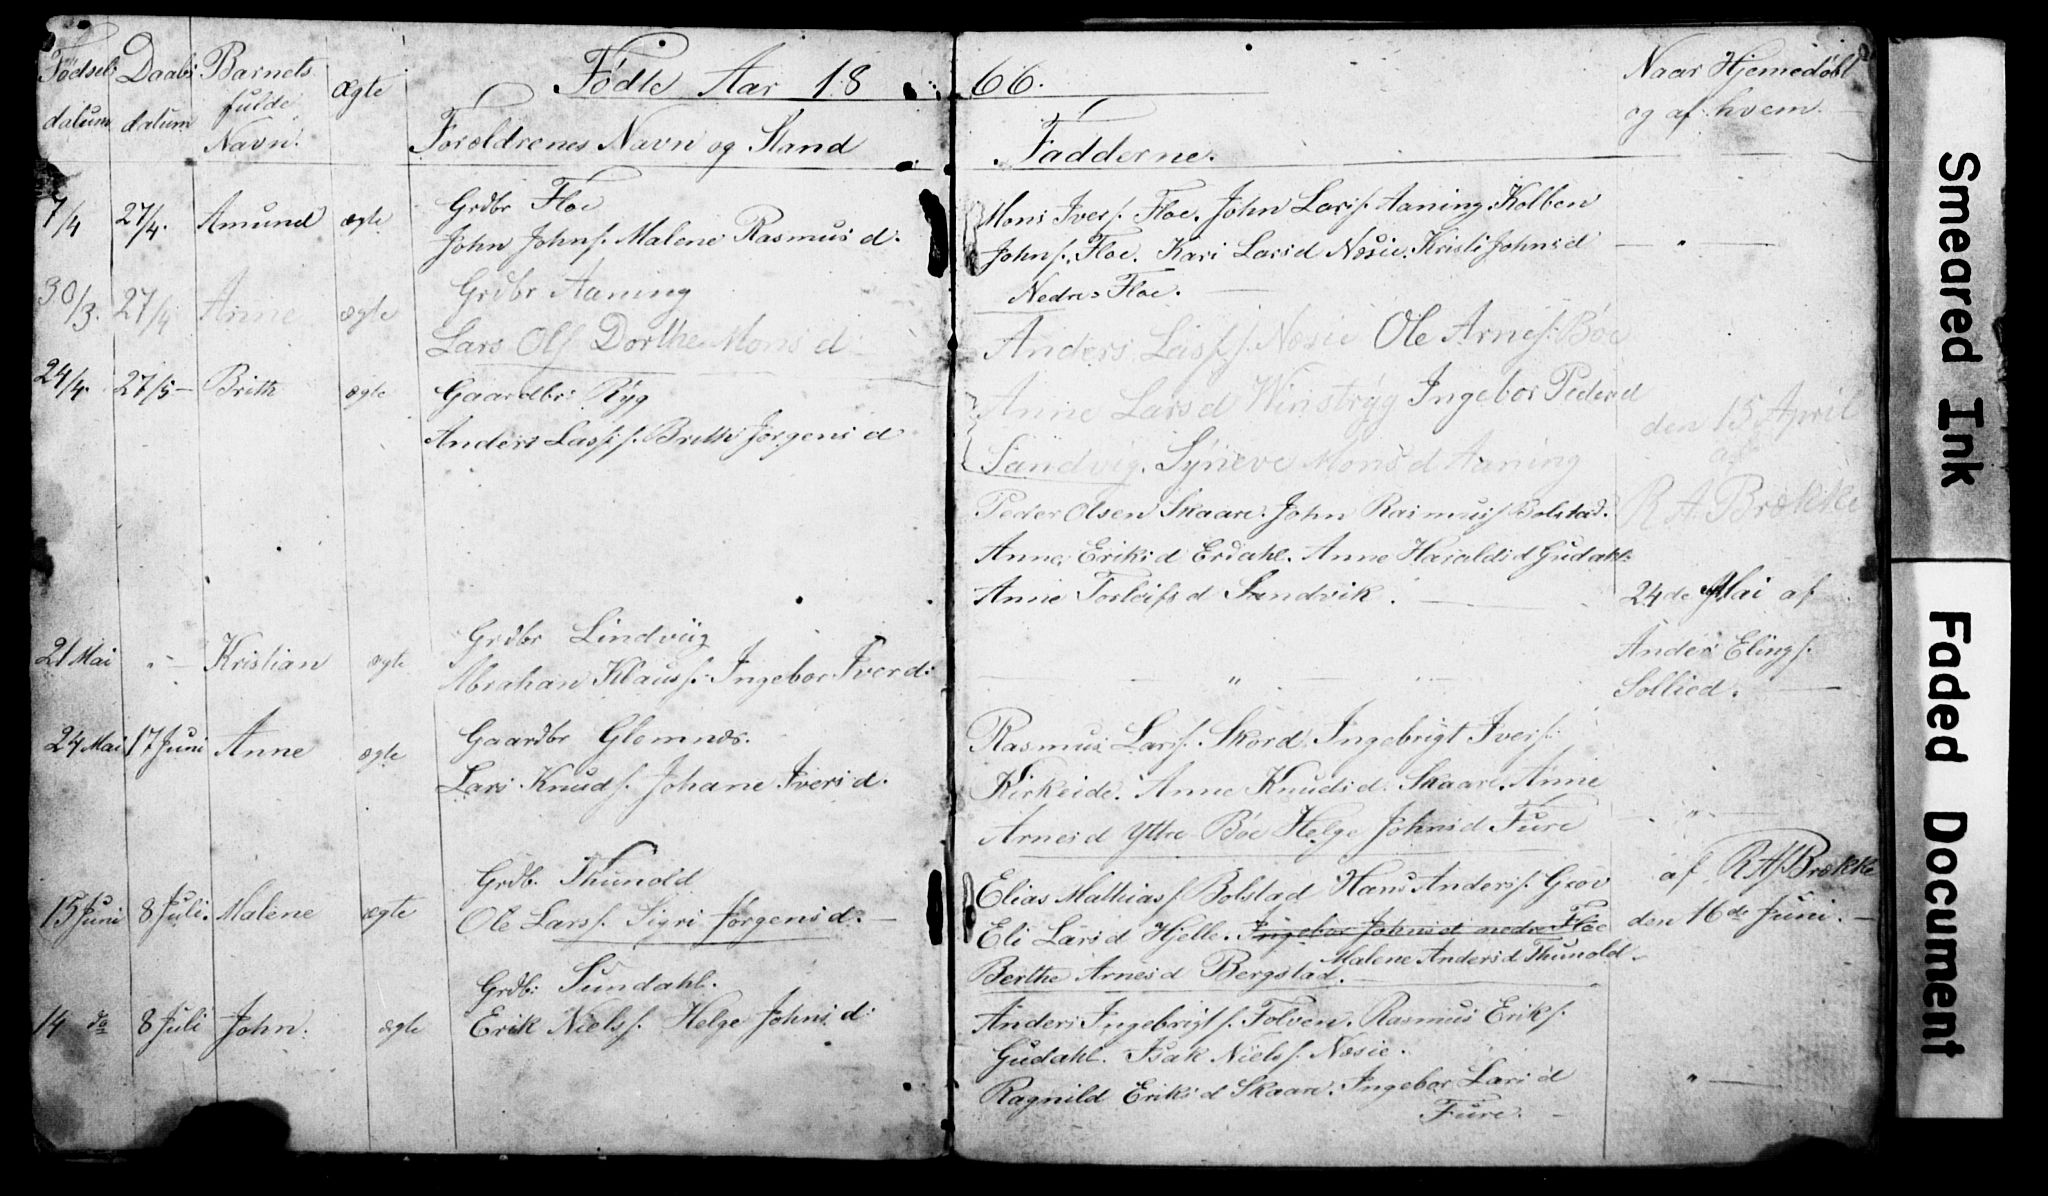 Fødte Aar 18 66.
Fødsels datum
Daabs datum
Barnets fulde Navn.
Ægte
Forældrenes Navn og Stand
Fadderne.
Naar Hjemedøbt
og af hvem.
7/4 27/4. Amund ægte
Grdbr Floe
John Johns. Malene Rasmusd.
Mons Ivers. Floe. John Lars. Aaning. Kolben
Johns. Floe. Kari Larsd Næsie. Kristi Johnsd
Nedre Floe.
30/3. 27/4 Arne ægte
Grdbr Aaning
Lars Ols Dorthe Monsd
Anders Lass. Næsie Ole Arnes. Bøe
Anne Larsd Winstryg Ingebor Pedersd
Sandvig. Syneve Monsd Aaning
den 15 April
af
R A Brække
24/4. 27/5 Brith ægte
Gaardbr Ryg
Anders Lass. Brithe Jørgensd
Peder Olsen Skaare. John Rasmus. Bolstad.
Anne Eriksd Erdahl. Anne Haraldsd Gudahl
Anne Torleifsd Sandvik.
21 Mai " Kristian ægte
Grdbr Lindviig
Abrahan Klaus. Ingebor Iverd.
24de Mai af
Anders Elings.
Sollied.
24 Mai 17 Juni Anne ægte
Gaardbr Glomnæs.
Lars Knuds. Johane Iversd.
Rasmus Lars. Skord. Ingebrigt Ivers.
Kirkeide. Anne Knudsd. Skaare. Anne
Arnesd Yttre Bøe Helge Johnsd Fure
15 Juni 8 Juli. Malene ægte
Grdb. Thunold
Ole Lars. Sigri Jørgensd.
Elias Mathias. Bolstad Hans Anders. Grov
Eli Larsd Hjelle. Ingebor Johnsd nedre Floe
Malene Andersd Thunold
Berthe Arnesd Bergstad.
af R As. Brække
den 16de Juni.
14 do 8 Juli John. ægte
Grdb: Sundahl.
Erik Niels. Helge Johnsd.
Anders Ingebrigts. Folven. Rasmus Eriks.
Gudahl. Isak Niels. Næsie.
Ragnild Eriksd Skaare. Ingebor Larsd
Fure.
Smeared Ink
Faded Document